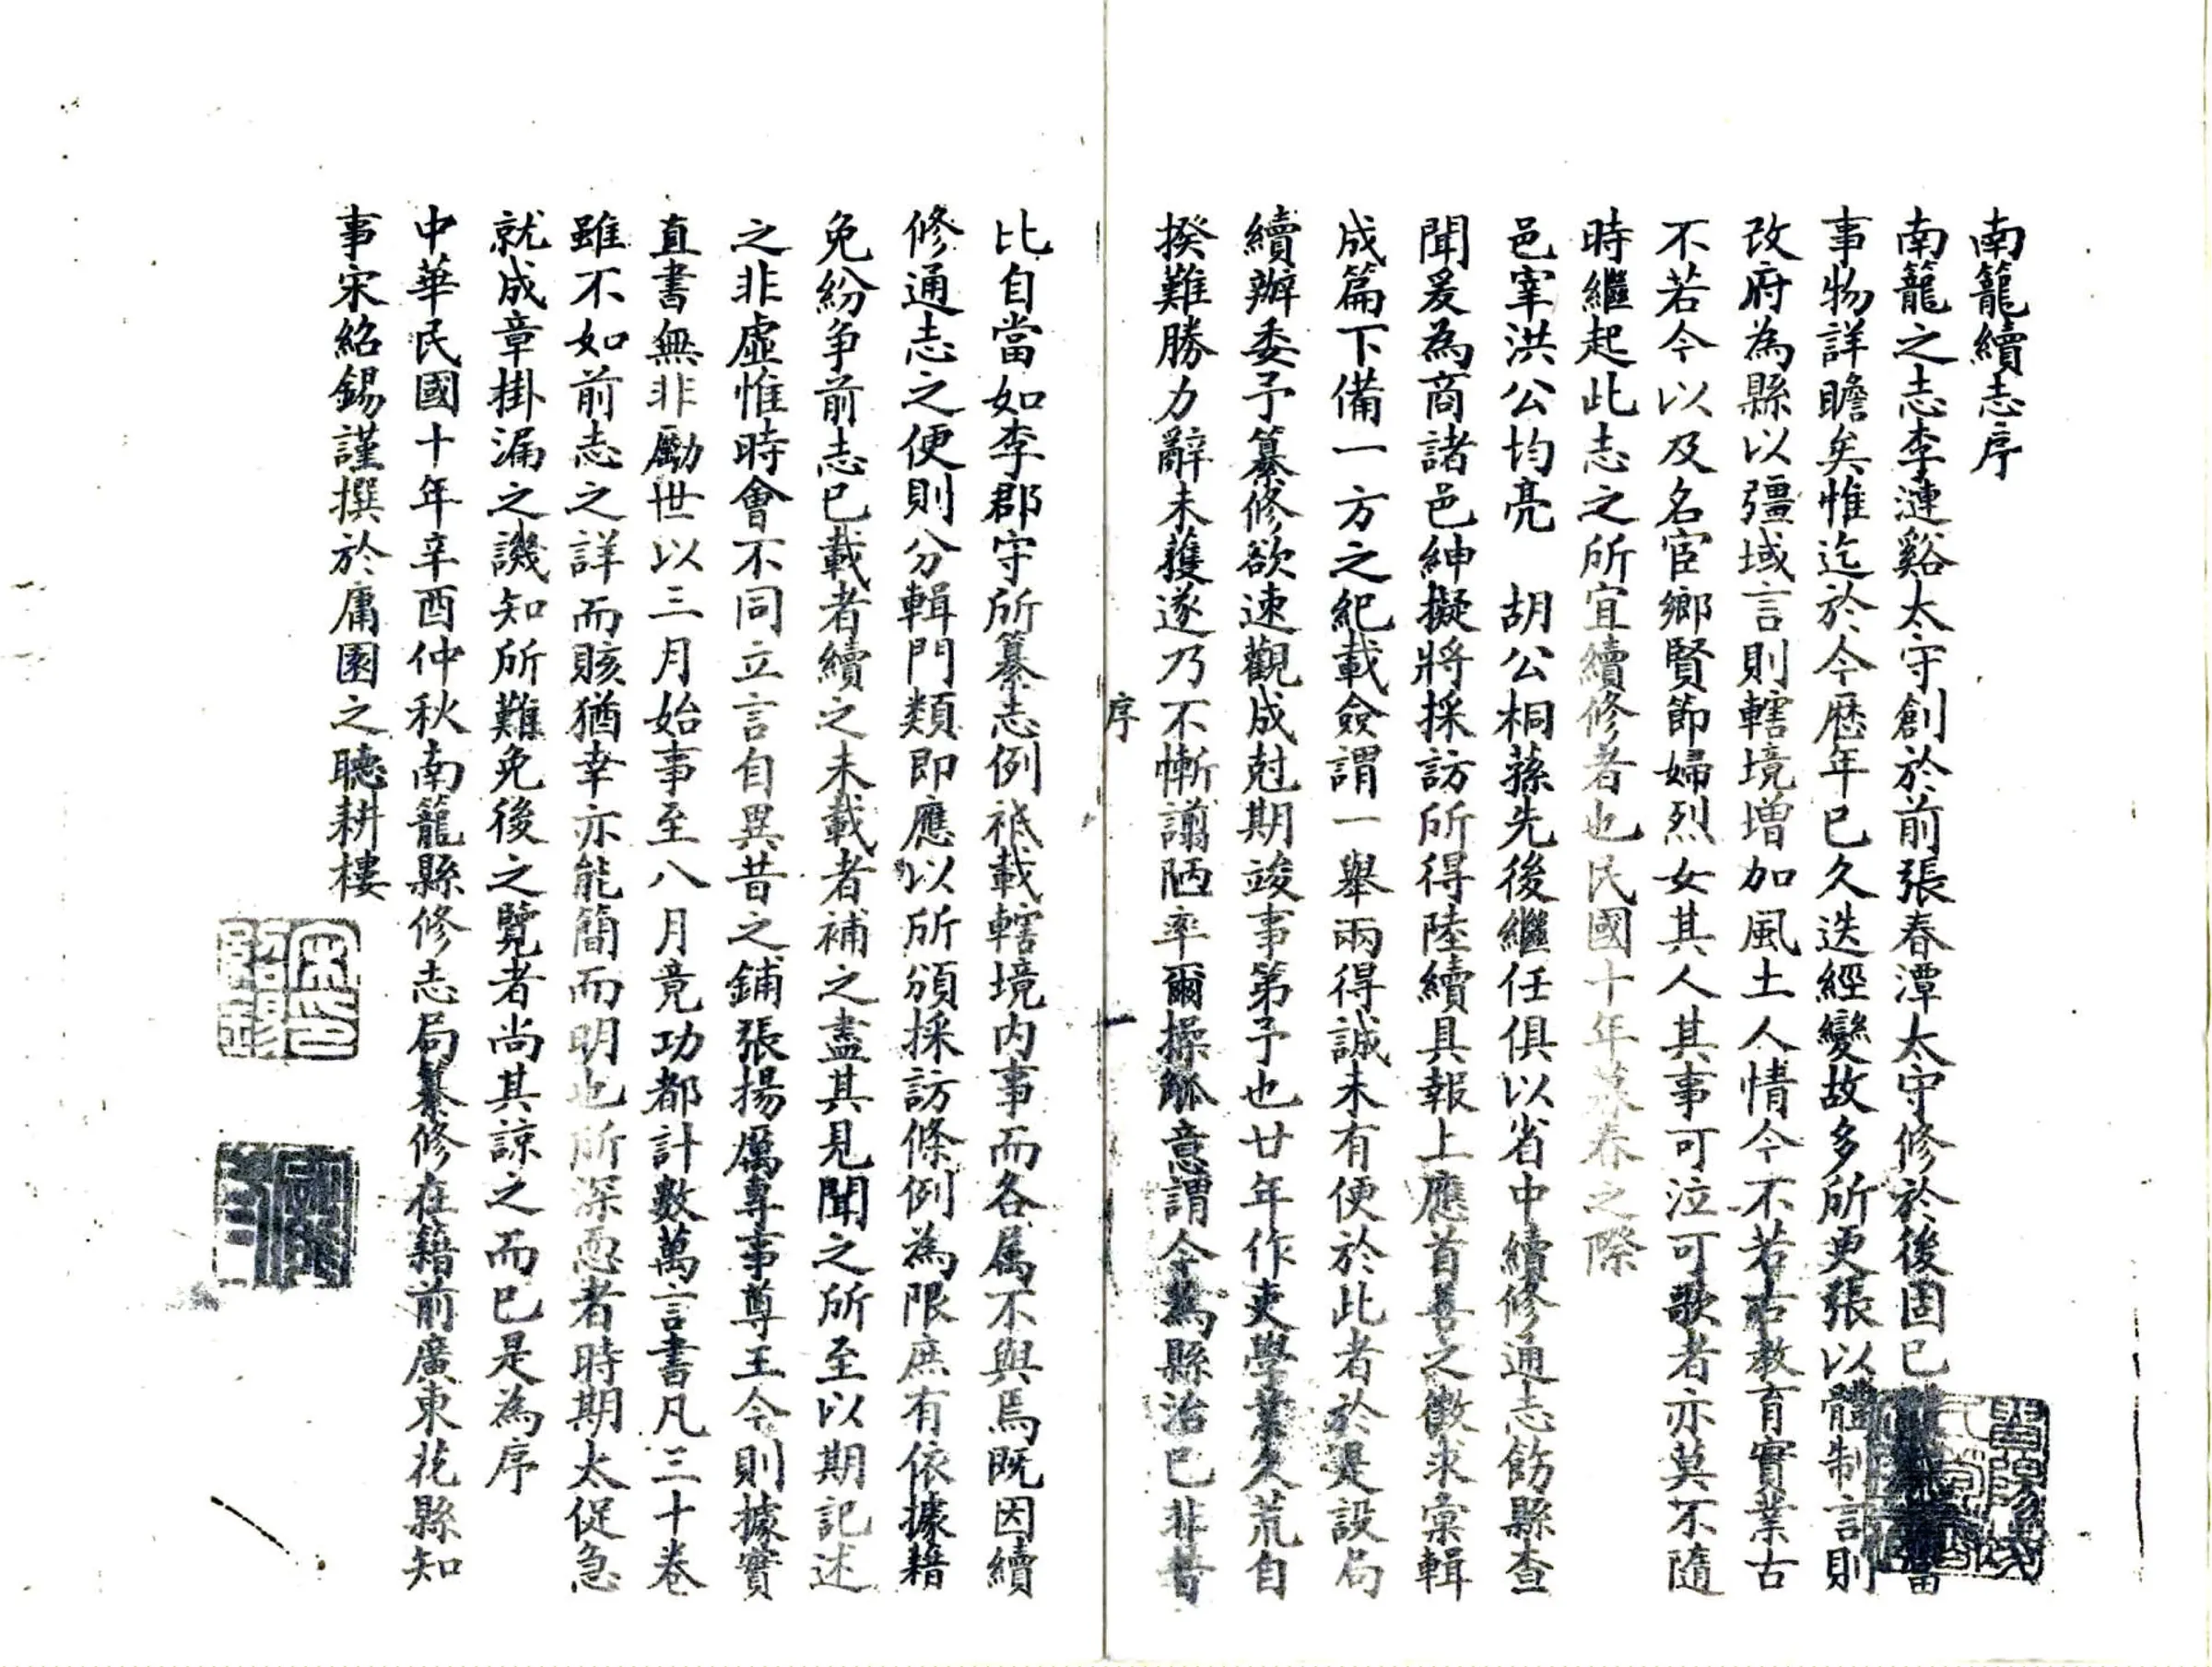 南籠續志序
南籠之志李漣谿太守創於前張春潭太守修於後固已
事物詳瞻矣惟迄於今歷年已久迭經變故多所更張以體制言則
改府為縣以彊域言則轄境增加風土人情今不若古教育實業古
不若今以及名宦鄉賢節婦烈女其人其事可泣可歌者亦莫不隨
時繼起此志之所宜續修者也民國十年暮春之際
邑宰洪公均亮　胡公桐蓀先後繼任俱以省中續修通志飭縣查
聞爰為商諸邑紳擬將採訪所得陸續具報上應首善之徵求彙輯
成篇下備一方之紀載僉謂一舉兩得誠未有便於此者於是設局
續辦委予纂修欲速觀成尅期竣事第予也廿年作吏學業久荒自
揆難勝力辭未獲遂乃不慚譾陋率爾操觚意謂今為縣治已非昔
序
一
比自當如李郡守所纂志例祗載轄境內事而各屬不與焉既因續
修通志之便則分輯門類即應以所頒採訪條例為限庶有依據藉
免紛爭前志已載者續之未載者補之盡其見聞之所至以期記述
之非虛惟時會不同立言自異昔之鋪張揚厲專事尊王今則據實
直書無非勵世以三月始事至八月竟功都計數萬言書凡三十卷
雖不如前志之詳而賅猶幸亦能簡而明也所深恧者時期太促急
就成章掛漏之譏知所難免後之覽者尚其諒之而已是為序
中華民國十年辛酉仲秋南籠縣修志局纂修在籍前廣東花縣知
事宋紹錫謹撰於庸園之聽耕樓